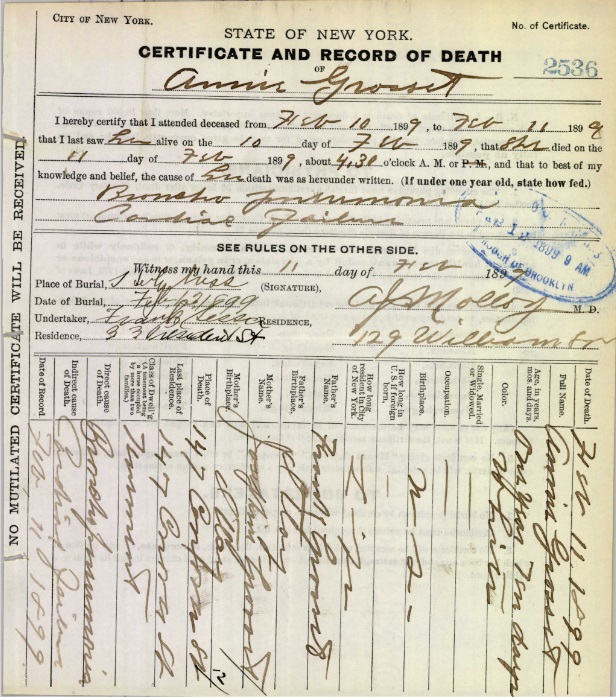 CITY OF NEW YORK.
No. of Certificate.
STATE OF NEW YORK.
CERTIFICATE AND RECORD OF DEATH
OF
2536
Annie Grosset
I hereby certify that I attended deceased from Feb 10 1899, to Feb 11 1899
that I last saw her alive on the 10 day of Feb 1899, that she died on the
11 day of Feb 1899, about 4,30 o'clock A. M. or P. M., and that to best of my
knowledge and belief, the cause of her death was as hereunder written. (If under one year old, state how fed.)
Broncho pneumonia
Cardiac Failure
1899 9 AM
BOROUGH OF BROOKLYN
SEE RULES ON THE OTHER SIDE.
Witness my hand this 11 day of Feb 189
Place of Burial,
(SIGNATURE), A J Molloy M. D.
Date of Burial, 1899
Undertaker, Frank
RESIDENCE, 129 William St
Residence, President St
NO MUTILATED CERTIFICATE WILL BE RECEIVED
Date of Death. Feb 11. 1899
Full Name. Annie Grosset
Age, in years, mos. and days. One Year Ten days
Color. White
Single, Married or Widowed. —
Occupation. —
Birthplace. N – Y –
How long in U. S. if foreign born. —
How long resident in City of New York.
Father's Name. Frank Grosset
Father's Birthplace. Italy
Mother's Name. Grosset
Mother's Birthplace. Italy
Place of Death. 47 Carroll St
Last place of Residence. 47 Carroll St
Class of Dwell'g (A tenement being a house occupied by more than two families.) Tenement
12
Direct cause of Death. Broncho pneumonia
Indirect cause of Death. Cardiac Failure
Date of Record. Feb 11 1899